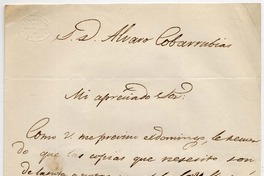 S. D. Alvaro Cobarrubias
Mi apreciado Sor:
Como V. me previno el domingo, le recuer
do que las copias que necesito son
de la nota